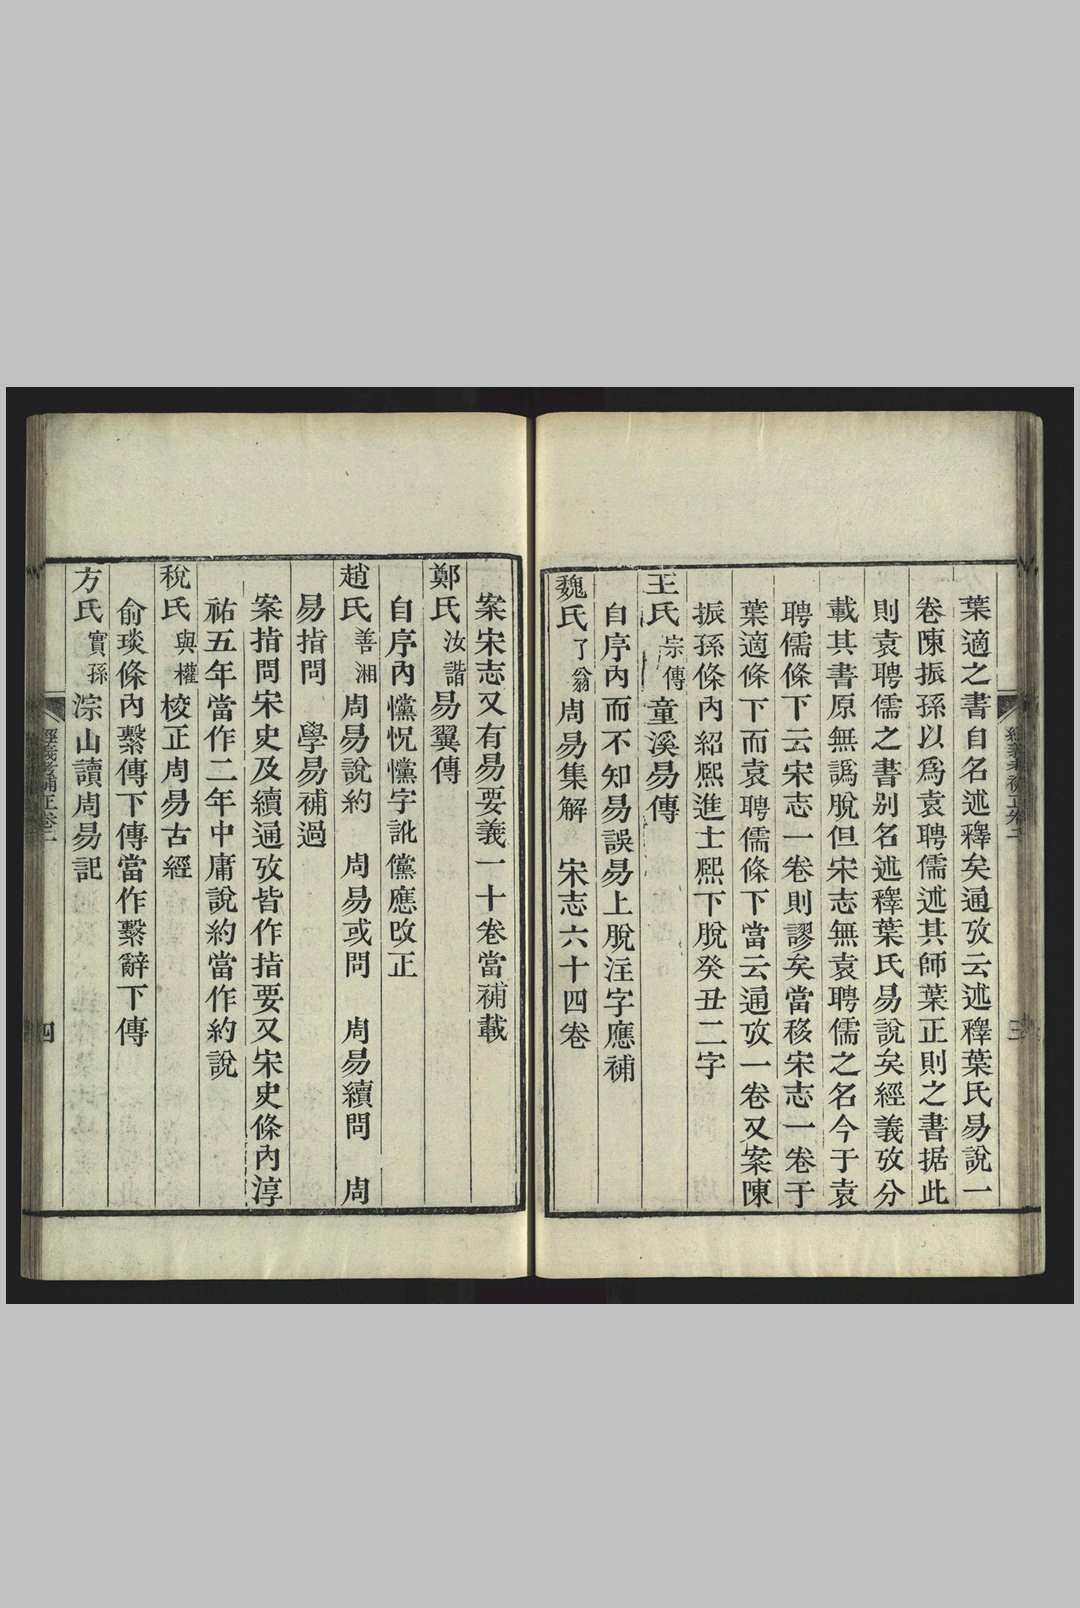 葉適之書自名述釋矣通攷云述釋葉氏易說一
卷陳振孫以爲袁聘儒述其師葉正則之書据此
則袁聘儒之書别名述釋葉氏易說矣經義攷分
載其書原無譌脫但宋志無袁聘儒之名今于袁
聘儒條下云宋志一卷則謬矣當移宋志一卷于
葉適條下而袁聘儒條下當云通攷一卷又案陳
振孫條內紹熙進士熙下脫癸丑二字
王氏宗傳童溪易傳
自序內而不知易誤易上脫注字應補
魏氏了翁周易集解 宋志六十四卷
案宋志又有易要義一十卷當補載
鄭氏汝諧易翼傳
自序內戃怳戃字訛儻應改正
趙氏善湘周易說約 周易或問 周易續問 周
易指問 學易補過
案指問宋史及續通攷皆作指要又宋史條內淳
祐五年當作二年中庸說約當作約說
稅氏與權校正周易古經
俞琰條內繫傳下傳當作繫辭下傳
方氏實孫淙山讀周易記
經義考補正卷二
四